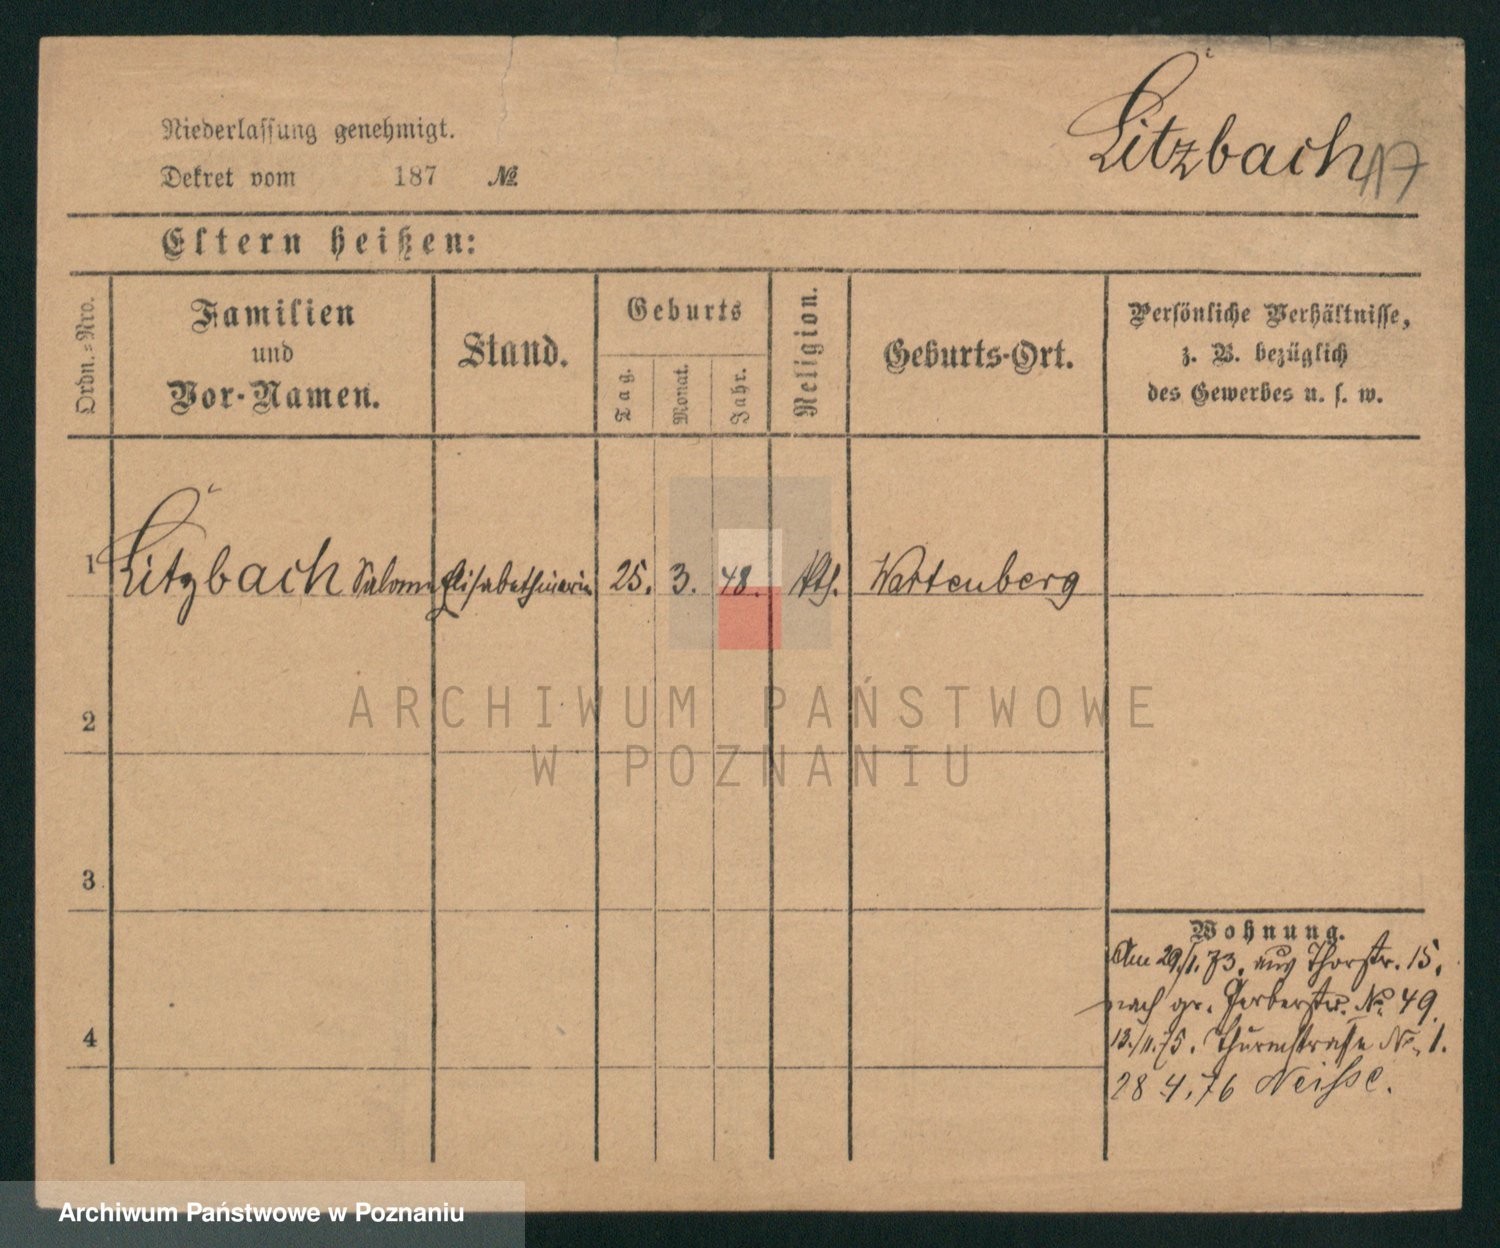 Litzbach
17
Niederlassung genehmigt.
Dekret vom 187 No
Eltern heißen:
Ordn.=Nro.
Familien
und
Vor-Namen.
Stand.
Geburts
Tag.
Monat.
Jahr.
Religion.
Geburts-Ort.
Persönliche Verhältnisse,
z. B. bezüglich
des Gewerbes u. s. w.
1 Litzbach Salome Elisabethinerin 25. 3. 48. kth. Wartenberg
2
3
4
Wohnung.
Am 29./1. 73. aus Thorstr. 15.
nach gr. Gerberstr. No. 49.
13./11. 75. Thurmstrasse No. 1.
28 4. 76 Neisse.
ARCHIWUM PAŃSTWOWE
W POZNANIU
Archiwum Państwowe w Poznaniu